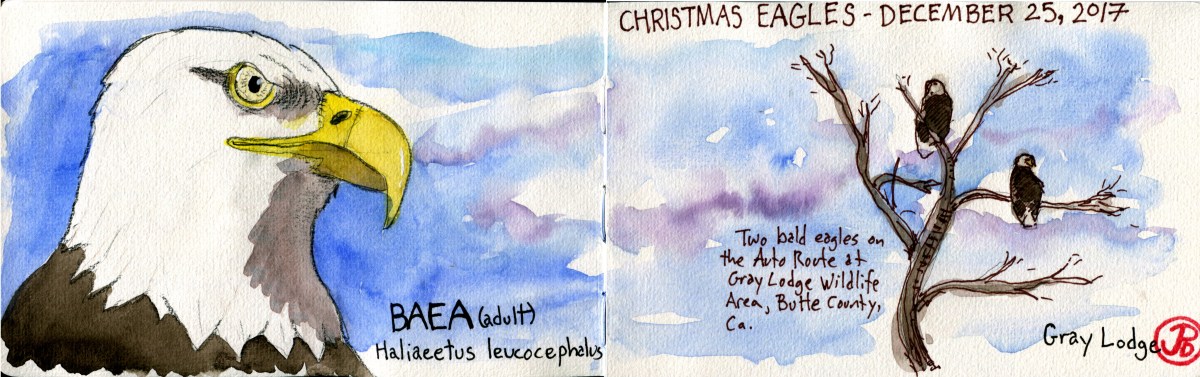 CHRISTMAS EAGLES - DECEMBER 25, 2017
BAEA (adult)
Haliaeetus leucocephalus
Two bald eagles on
the Auto Route at
Gray Lodge Wildlife
Area, Butte County,
Ca.
Gray Lodge
JPD